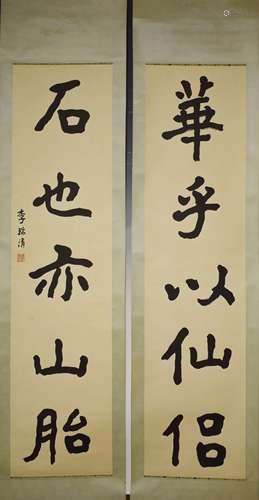 華乎以仙侣
石也亦山胎
李瑞清